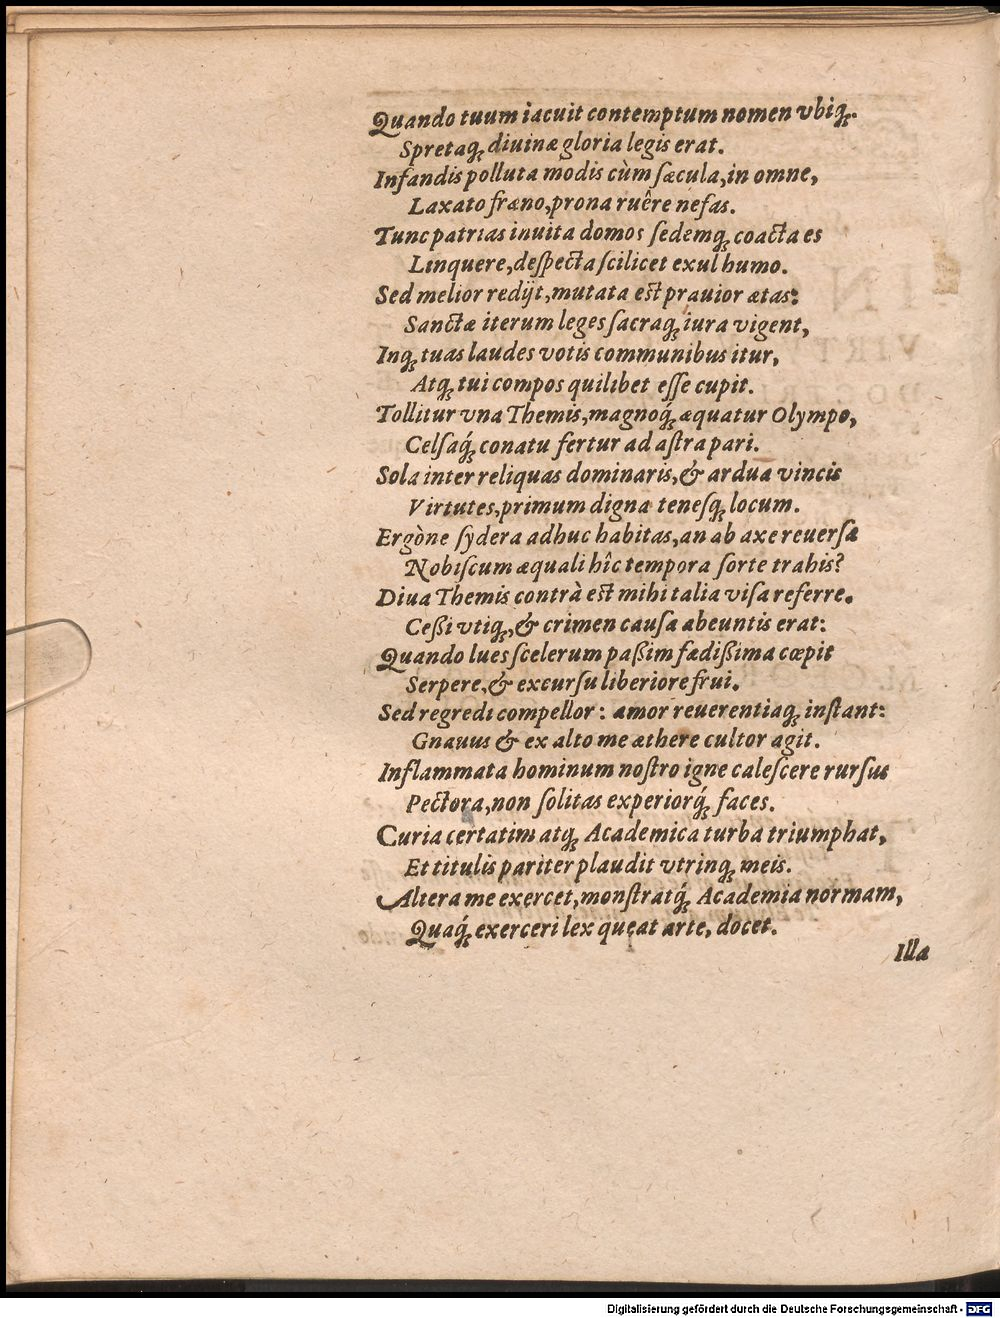 Quando tuum iacuit contemptum nomen vbiq́.
Spretaq́ diuinæ gloria legis erat.
Infandis polluta modis cùm ſæcula, in omne,
Laxato fræno, prona ruêre nefas.
Tunc patrias inuita domos ſedemq́ coacta es
Linquere, deſpecta ſcilicet exul humo.
Sed melior redijt, mutata eſt prauior ætas:
Sanctæ iterum leges ſacraq́ iura vigent,
Inq́ tuas laudes votis communibus itur,
Atq́ tui compos quilibet eſſe cupit.
Tollitur vna Themis, magnoq́ æquatur Olympo,
Celſaq́ conatu fertur ad aſtra pari.
Sola inter reliquas dominaris, & ardua vincis
Virtutes, primum digna teneſq́ locum.
Ergòne ſydera adhuc habitas, an ab axe reuerſa
Nobiſcum æquali hîc tempora ſorte trahis?
Diua Themis contrà eſt mihi talia viſa referre.
Ceßi vtiq́, & crimen cauſa abeuntis erat:
Quando lues ſcelerum paßim fædißima cœpit
Serpere, & excurſu liberiore frui.
Sed regredi compellor: amor reuerentiaq́ inſtant:
Gnauus & ex alto me æthere cultor agit.
Inflammata hominum noſtro igne caleſcere rurſus
Pectora, non ſolitas experiorq́ faces.
Curia certatim atq́ Academica turba triumphat,
Et titulis pariter plaudit vtrinq́ meis.
Altera me exercet, monſtratq́ Academia normam,
Quaq́ exerceri lex queat arte, docet.
Illa
Digitalisierung gefördert durch die Deutsche Forschungsgemeinschaft - DFG